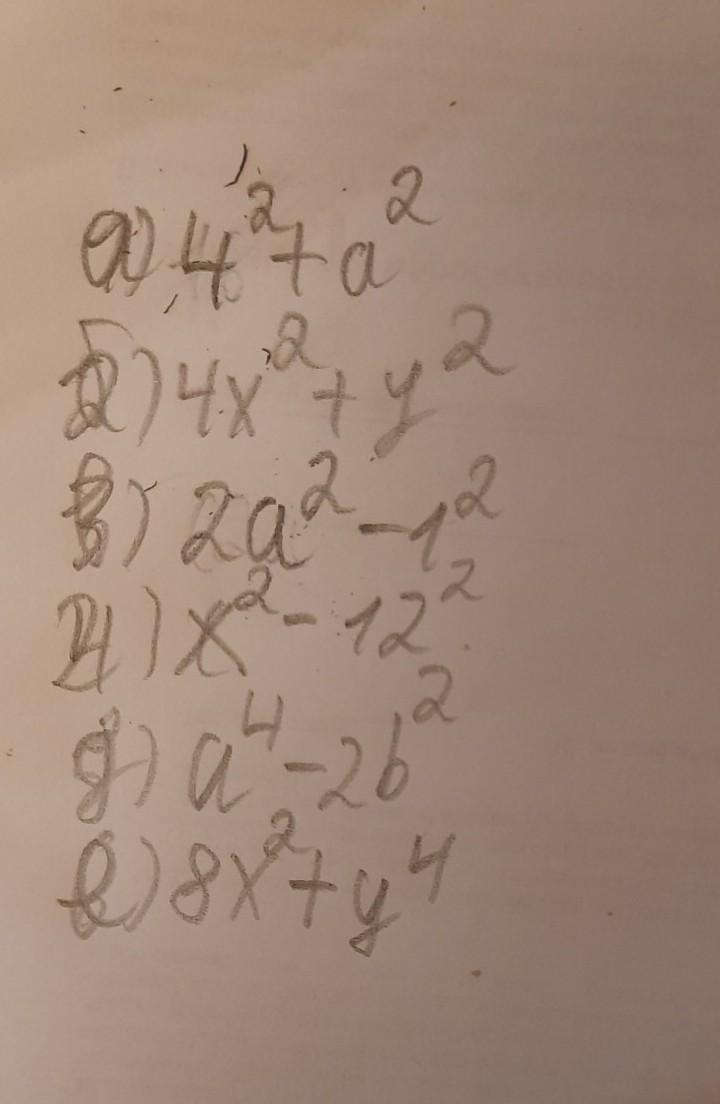 а) 4² + a²
б) 4x² + y²
в) 2a² - 1²
г) x² - 12²
д) a⁴ - 2b²
е) 8x² + y⁴